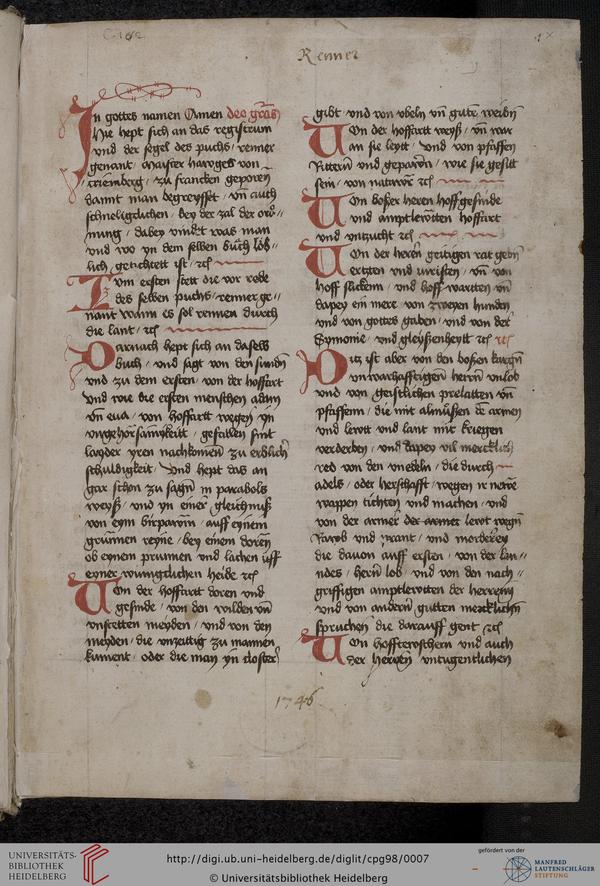 Renner
1x
In gottes namen Amen deo gras
Hie hept sich an das registrum
vnd der segel des puchs renner
genant maister hawgß von
triemberg zu francken geporen
damit man begreyffet vnd auch
schneligclichen bey der zal der ord=
nung dabey vindt was man
vnd wo yn dem selben buch lob=
lich getichtett ist etc
Zum ersten stett die vor rede
des selben puchs renner ge=
nant wann es sol rennen durch
die lant etc
Darnach hept sich an daselb
buch vnd sagt von den sundn
vnd zu dem ersten von der hoffart
vnd wie die ersten menschen adam
vn eua von hoffartt wegen yn
vngehorsamykeitt gefallen sint
layder yren nachkomen zu erblicher
schuldigkeit Vnd hept das an
gar schon zu sagn in parabols
weyß vnd yn einer gleichnuß
von eym birpawm auff eynem
grunnen reyne bey einem doren
ob eynem prunnen vnd lachen vff
eyner wunigclichen heide etc
Von der hoffartt doren vnd
gesinde von den wilden vn
vnstetten meyden vnd von den
meyden die vnzeittig zu mannen
kument oder die man yn closter
gibt vnd von vbeln vn guten weibn
Von der hoffartt weyß vn war
an sie leytt vnd von pfaffen
Rittern vnd geparen wie sie gesitt
sein von naturen etc
Von boßer heren hoffgesinde
vnd amptlewtten hoffart
vnd vnzucht etc
Von der heren geitigen rat gebn
ertzten vnd iuristen vn von
hoff suckem vnd hoff wartten vn
dapey ein mere von zweyen hunden
vnd von gottes gaben vnd von der
Symonie vnd gleyßenheytt etc etc
Ditz ist aber von den boßen kargn
vnwarhafftigen herrn vnlob
vnd von geistlichen prelatten vn
pfaffenn die mit almußen de armen
vnd lewtt vnd lant mit kriegen
verderben vnd dapey vil mercklich
red von den vnedeln die durch
adels oder herschafft wegen ir newe
wappen tichten vnd machen vnd
von der armer der armer lewt wegn
Rawb vnd prant vnd morderey
die dauon auff ersten von der lan=
ndes hern lob vnd von den nach=
griffigen amptlewtten der herrenn
vnd von andern gutten mercklichn
spruchen die darauff gent etc
Von hoffteroschern vnd auch
der herren vntugentlichen
1746
UNIVERSITÄTS-
BIBLIOTHEK
HEIDELBERG
http://digi.ub.uni-heidelberg.de/diglit/cpg98/0007
© Universitätsbibliothek Heidelberg
gefördert von der
MANFRED
LAUTENSCHLÄGER
STIFTUNG